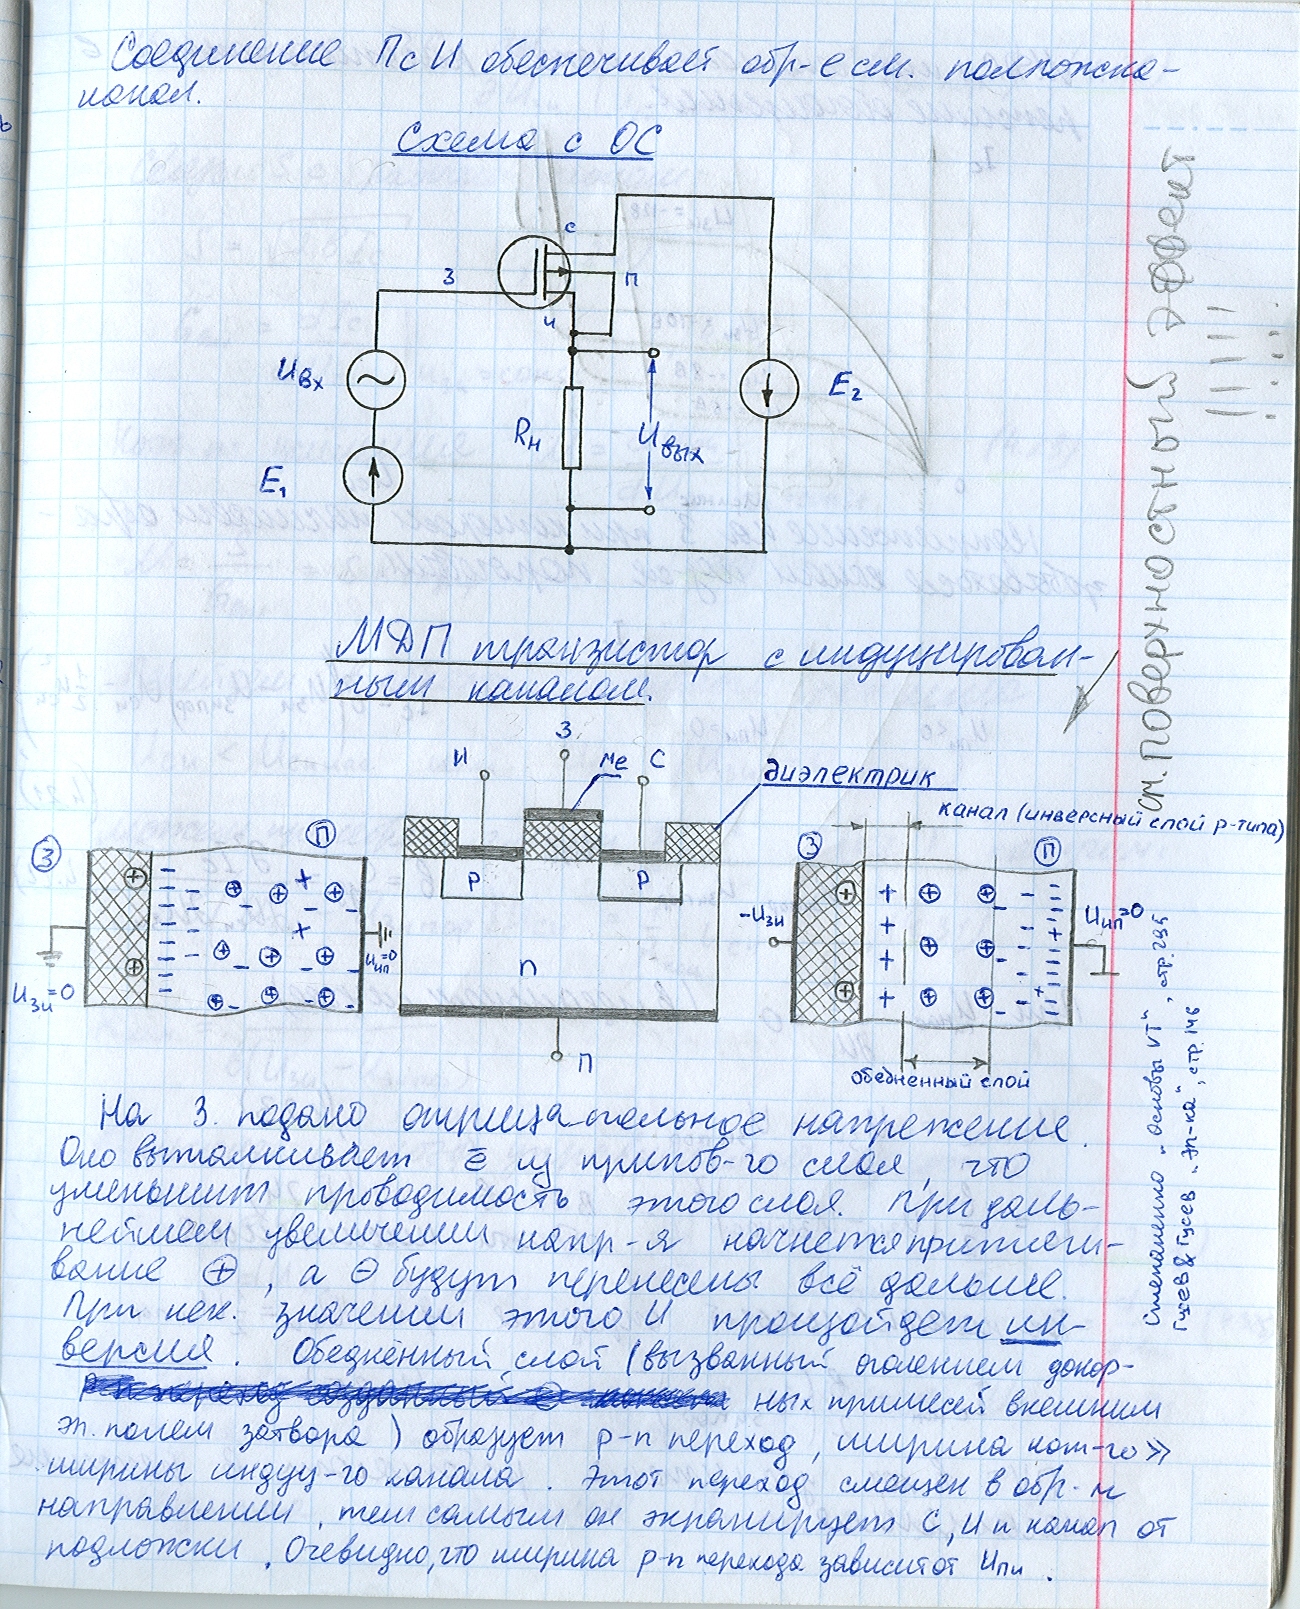 Соединение П с И обеспечивает обр-е см. подложка-
канал.
Схема с ОС
С
З
П
И
Uвх
E₂
Rн
Uвых
E₁
МДП транзистор с индуцирован-
ным каналом.
З
И
Ме
С
диэлектрик
канал (инверсный слой p-типа)
З
П
З
П
p
p
n
-Uзи
Uип=0
Uип=0
Uзи=0
П
обеднённый слой
На З. подано отрицательное напряжение.
Оно выталкивает ē из припов-го слоя, что
уменьшит проводимость этого слоя. При даль-
нейшем увеличении напр-я начнется притяги-
вание ⊕, а ⊖ будут перенесены всё дальше.
При нек. значении этого U произойдет ин-
версия. Обеднённый слой (вызванный оголением донор-
ных примесей внешним
эл. полем затвора) образует p-n переход, ширина кот-го >>
ширины индуц-го канала. Этот переход смещен в обр-м
направлении, тем самым он экранирует С, И и канал от
подложки. Очевидно, что ширина p-n перехода зависит от Uпи.
см. поверхностный эффект !!!!!
Степаненко „Основы VT", стр. 295
Гусев & Гусев „Эл-ка", стр. 146